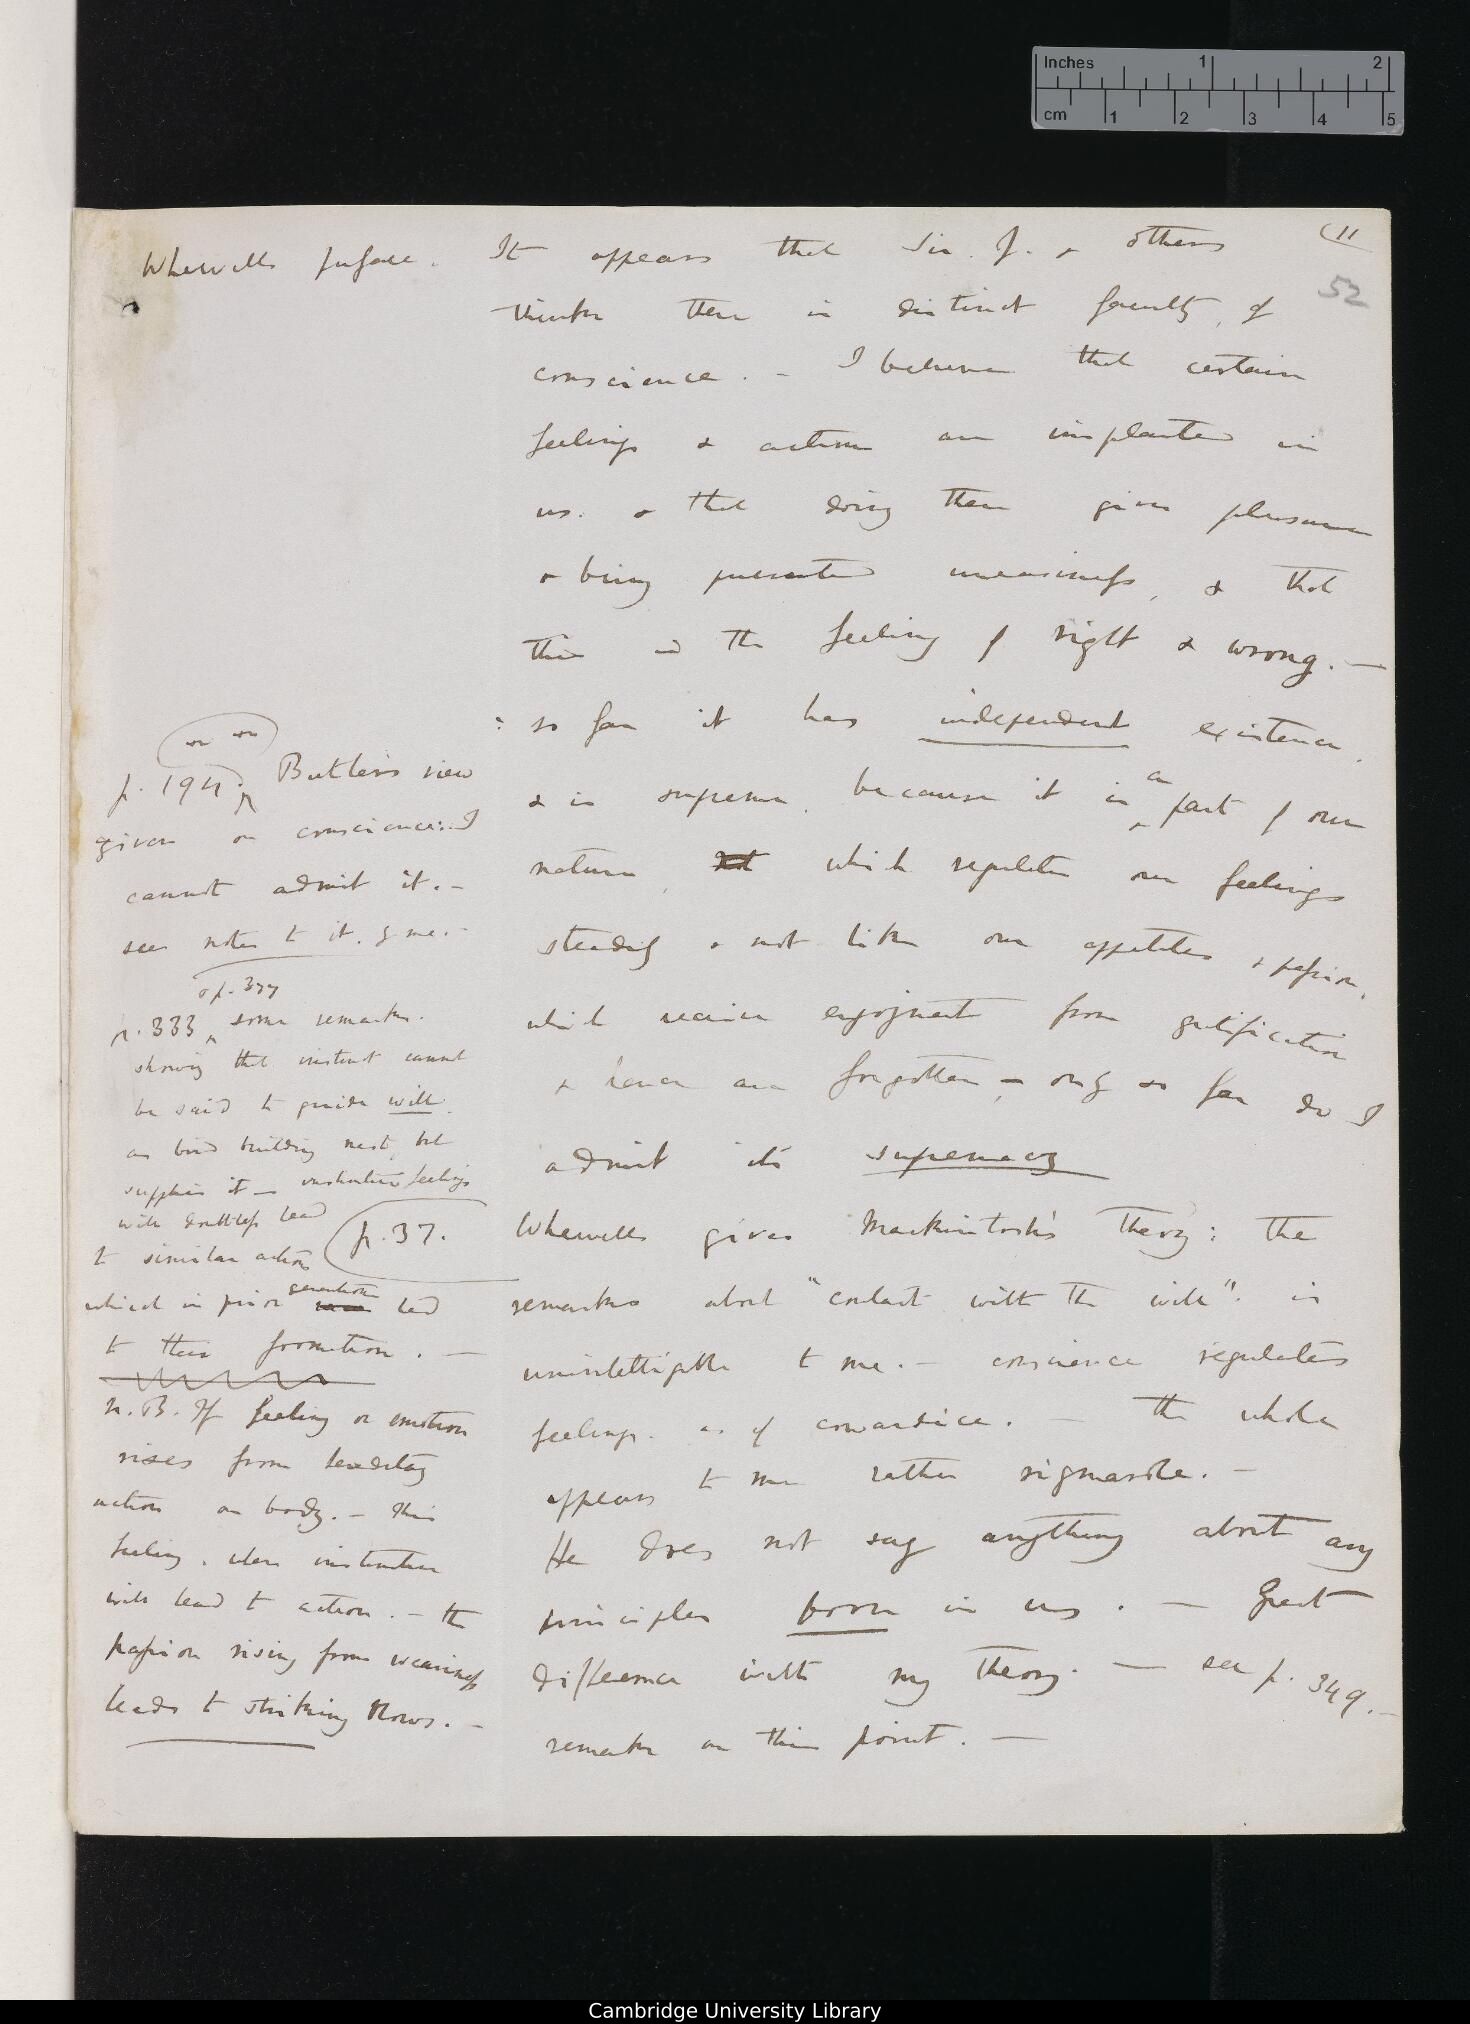 Inches 1 2
cm 1 2 3 4 5
(11
52
Whewells preface. It appears that Sir. J. & others
thinks there is distinct faculty, of
conscience. — I believe that certain
feelings & actions are implanted in
us. & that doing them gives pleasure
& being prevented uneasiness, & that
this is the feeling of right & wrong. —
so far it has independent existence,
& is supreme. because it is a part of our
nature, which regulates our feelings
steadily & not like our appetites & passions,
which receive enjoyment from gratification
& hence are forgotten — only so far do I
admit its supremacy
p. 37. Whewells gives Mackintosh's theory: the
remarks about "contact with the will". is
unintelligible to me. — conscience regulates
feelings. as of cowardice. — the whole
appears to me rather rigmarole. —
He does not say anything about any
principles born in us. — Great
difference with my theory. — see p. 349. —
remarks on this point. —
p. 194. Butler's view
given on conscience: I
cannot admit it. —
see notes to it. by me. —
& p. 377
p. 333 some remarks.
showing that instinct cannot
be said to guide will.
as bird building nest, but
supplies it — instinctive feelings
will doubtless lead
to similar actions
which in prior generations led
to their formation. —
N.B. If feeling or emotion
rises from hereditary
action on body. — this
feeling, when instinctive
will lead to action. — the
passion rising from weariness
leads to striking blows. —
Cambridge University Library